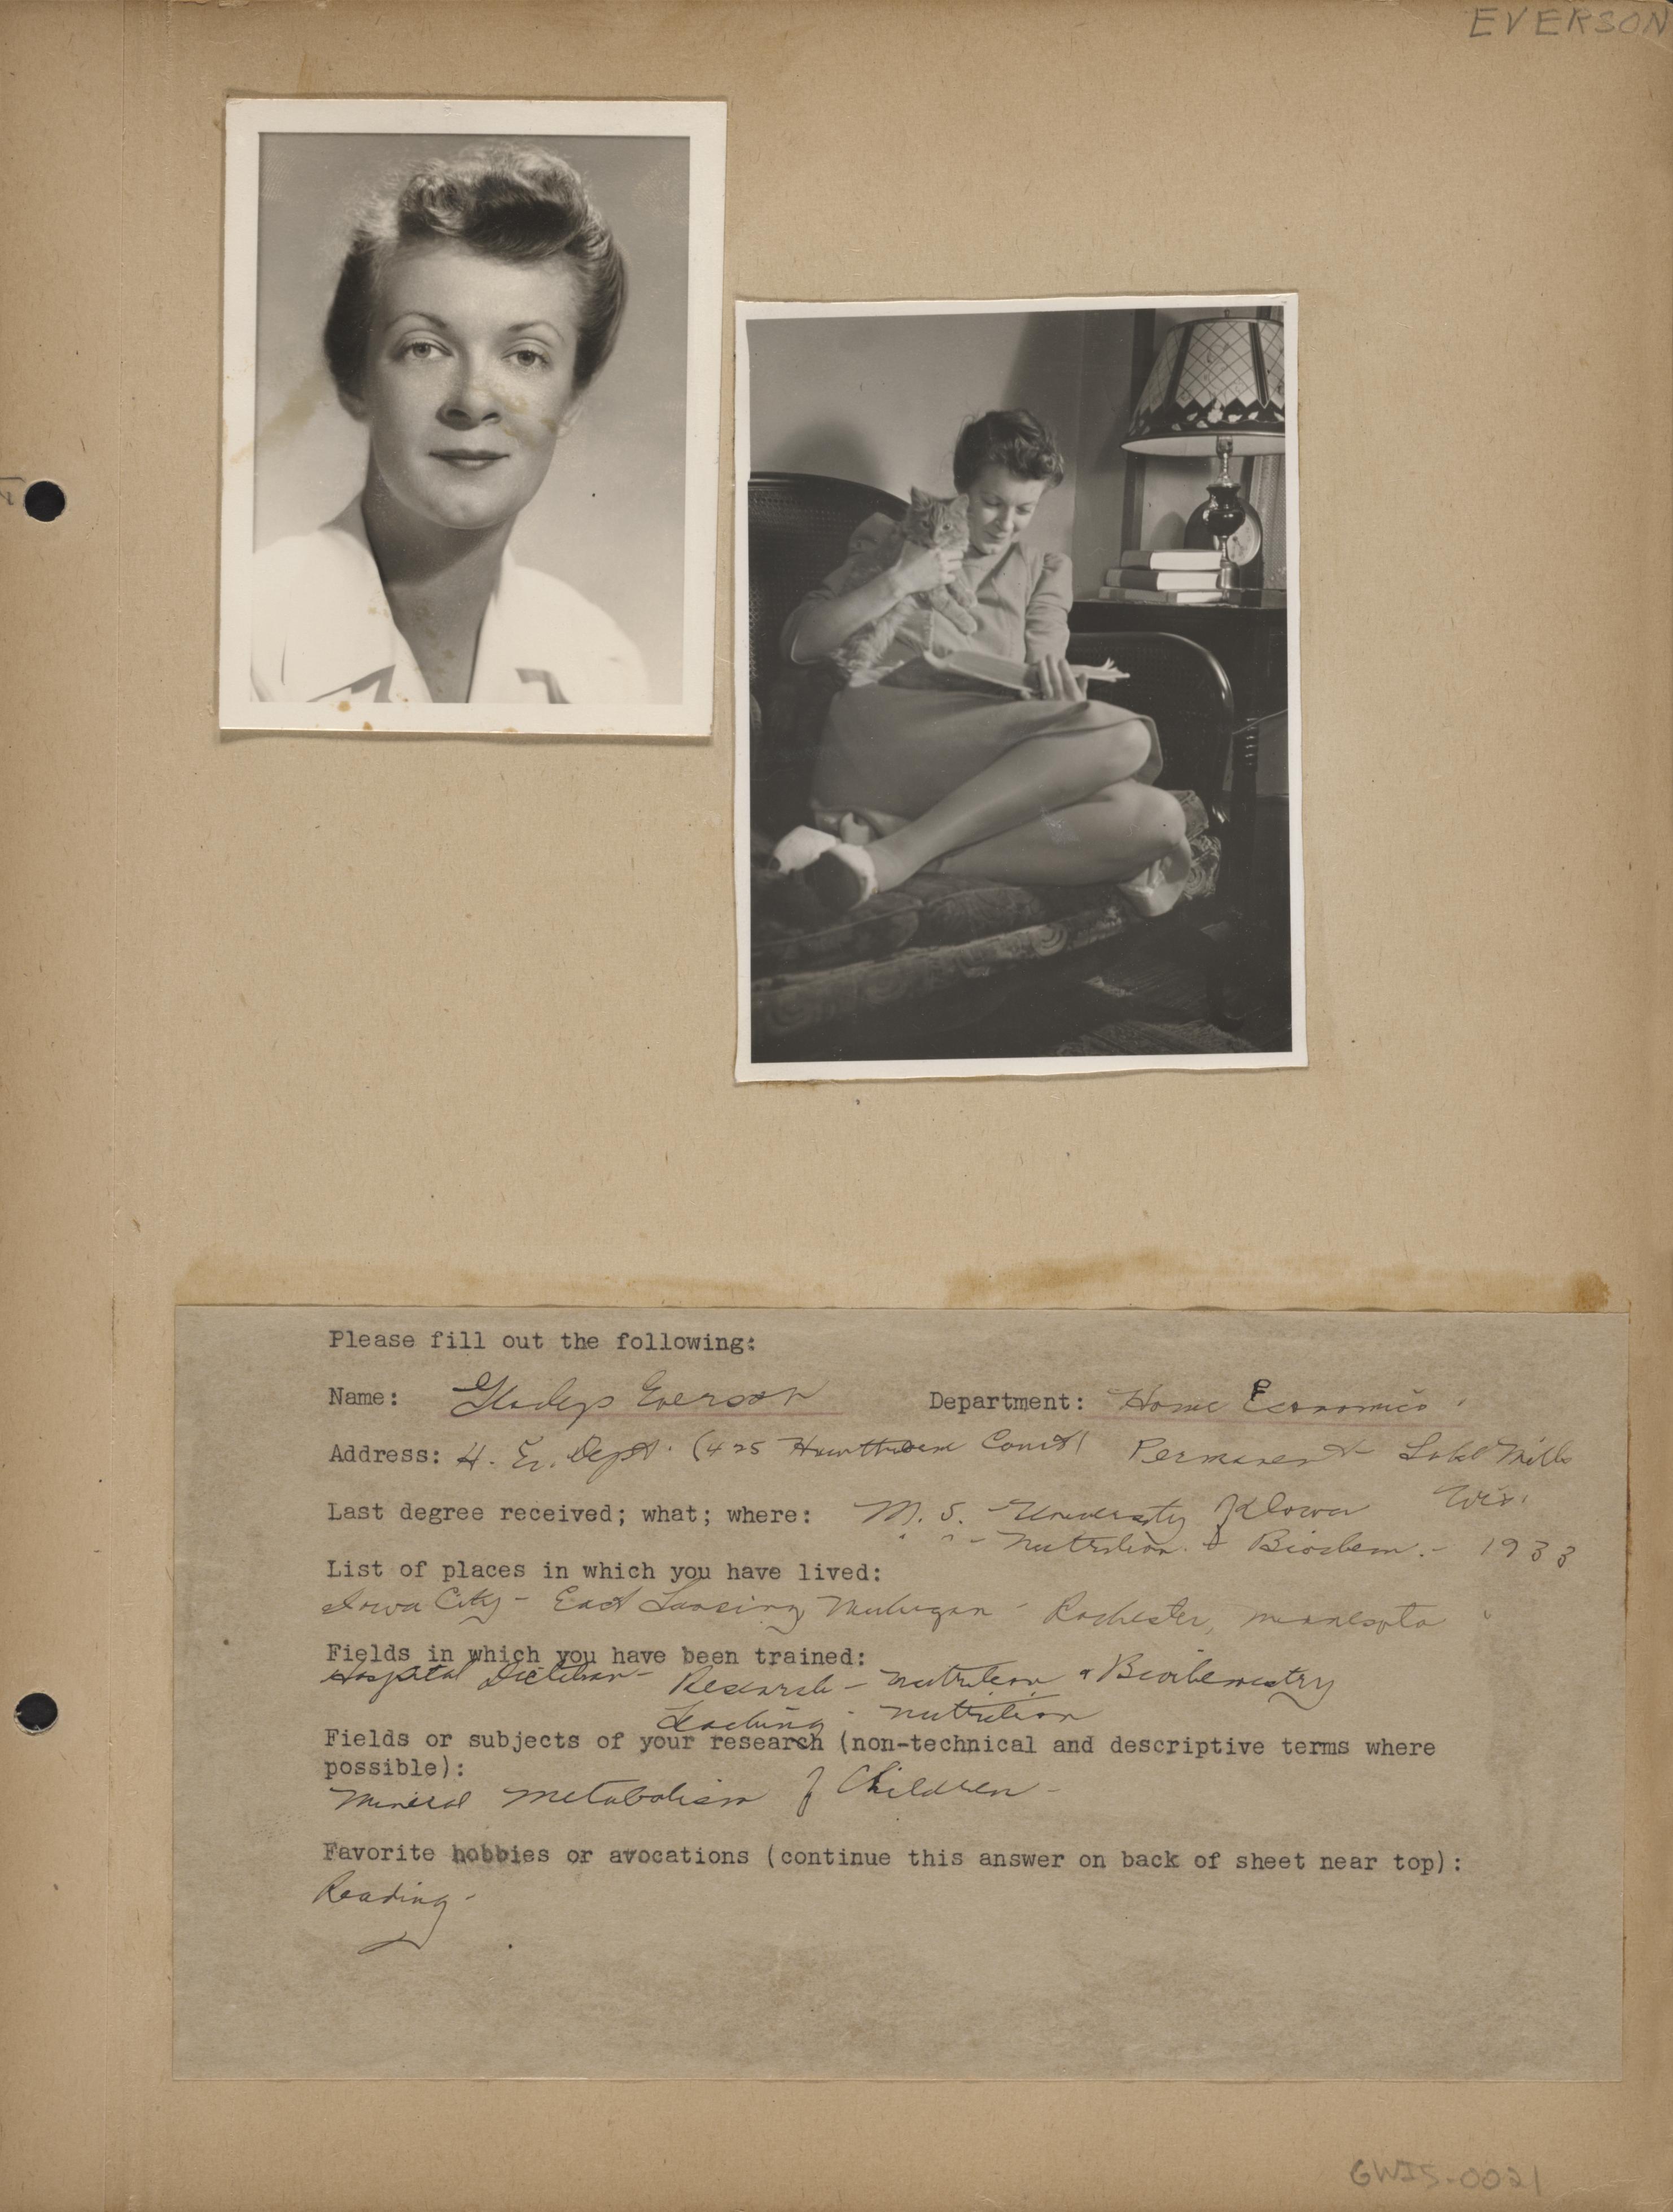 EVERSON
Please fill out the following:
Name: Gladys Everson Department: Home Economics
Address: H. Ec. Dept. (425 Hawthorne Court) Permanent - Lake Mills
Wis.
Last degree received; what; where: M. S. University of Iowa
" " - Nutrition & Biochem. - 1933
List of places in which you have lived:
Iowa City - East Lansing Michigan - Rochester, Minnesota
Fields in which you have been trained:
Hospital Dietitian - Research - Nutrition & Biochemistry
Teaching - Nutrition
Fields or subjects of your research (non-technical and descriptive terms where
possible):
Mineral Metabolism of Children -
Favorite hobbies or avocations (continue this answer on back of sheet near top):
Reading -
GWIS-0021